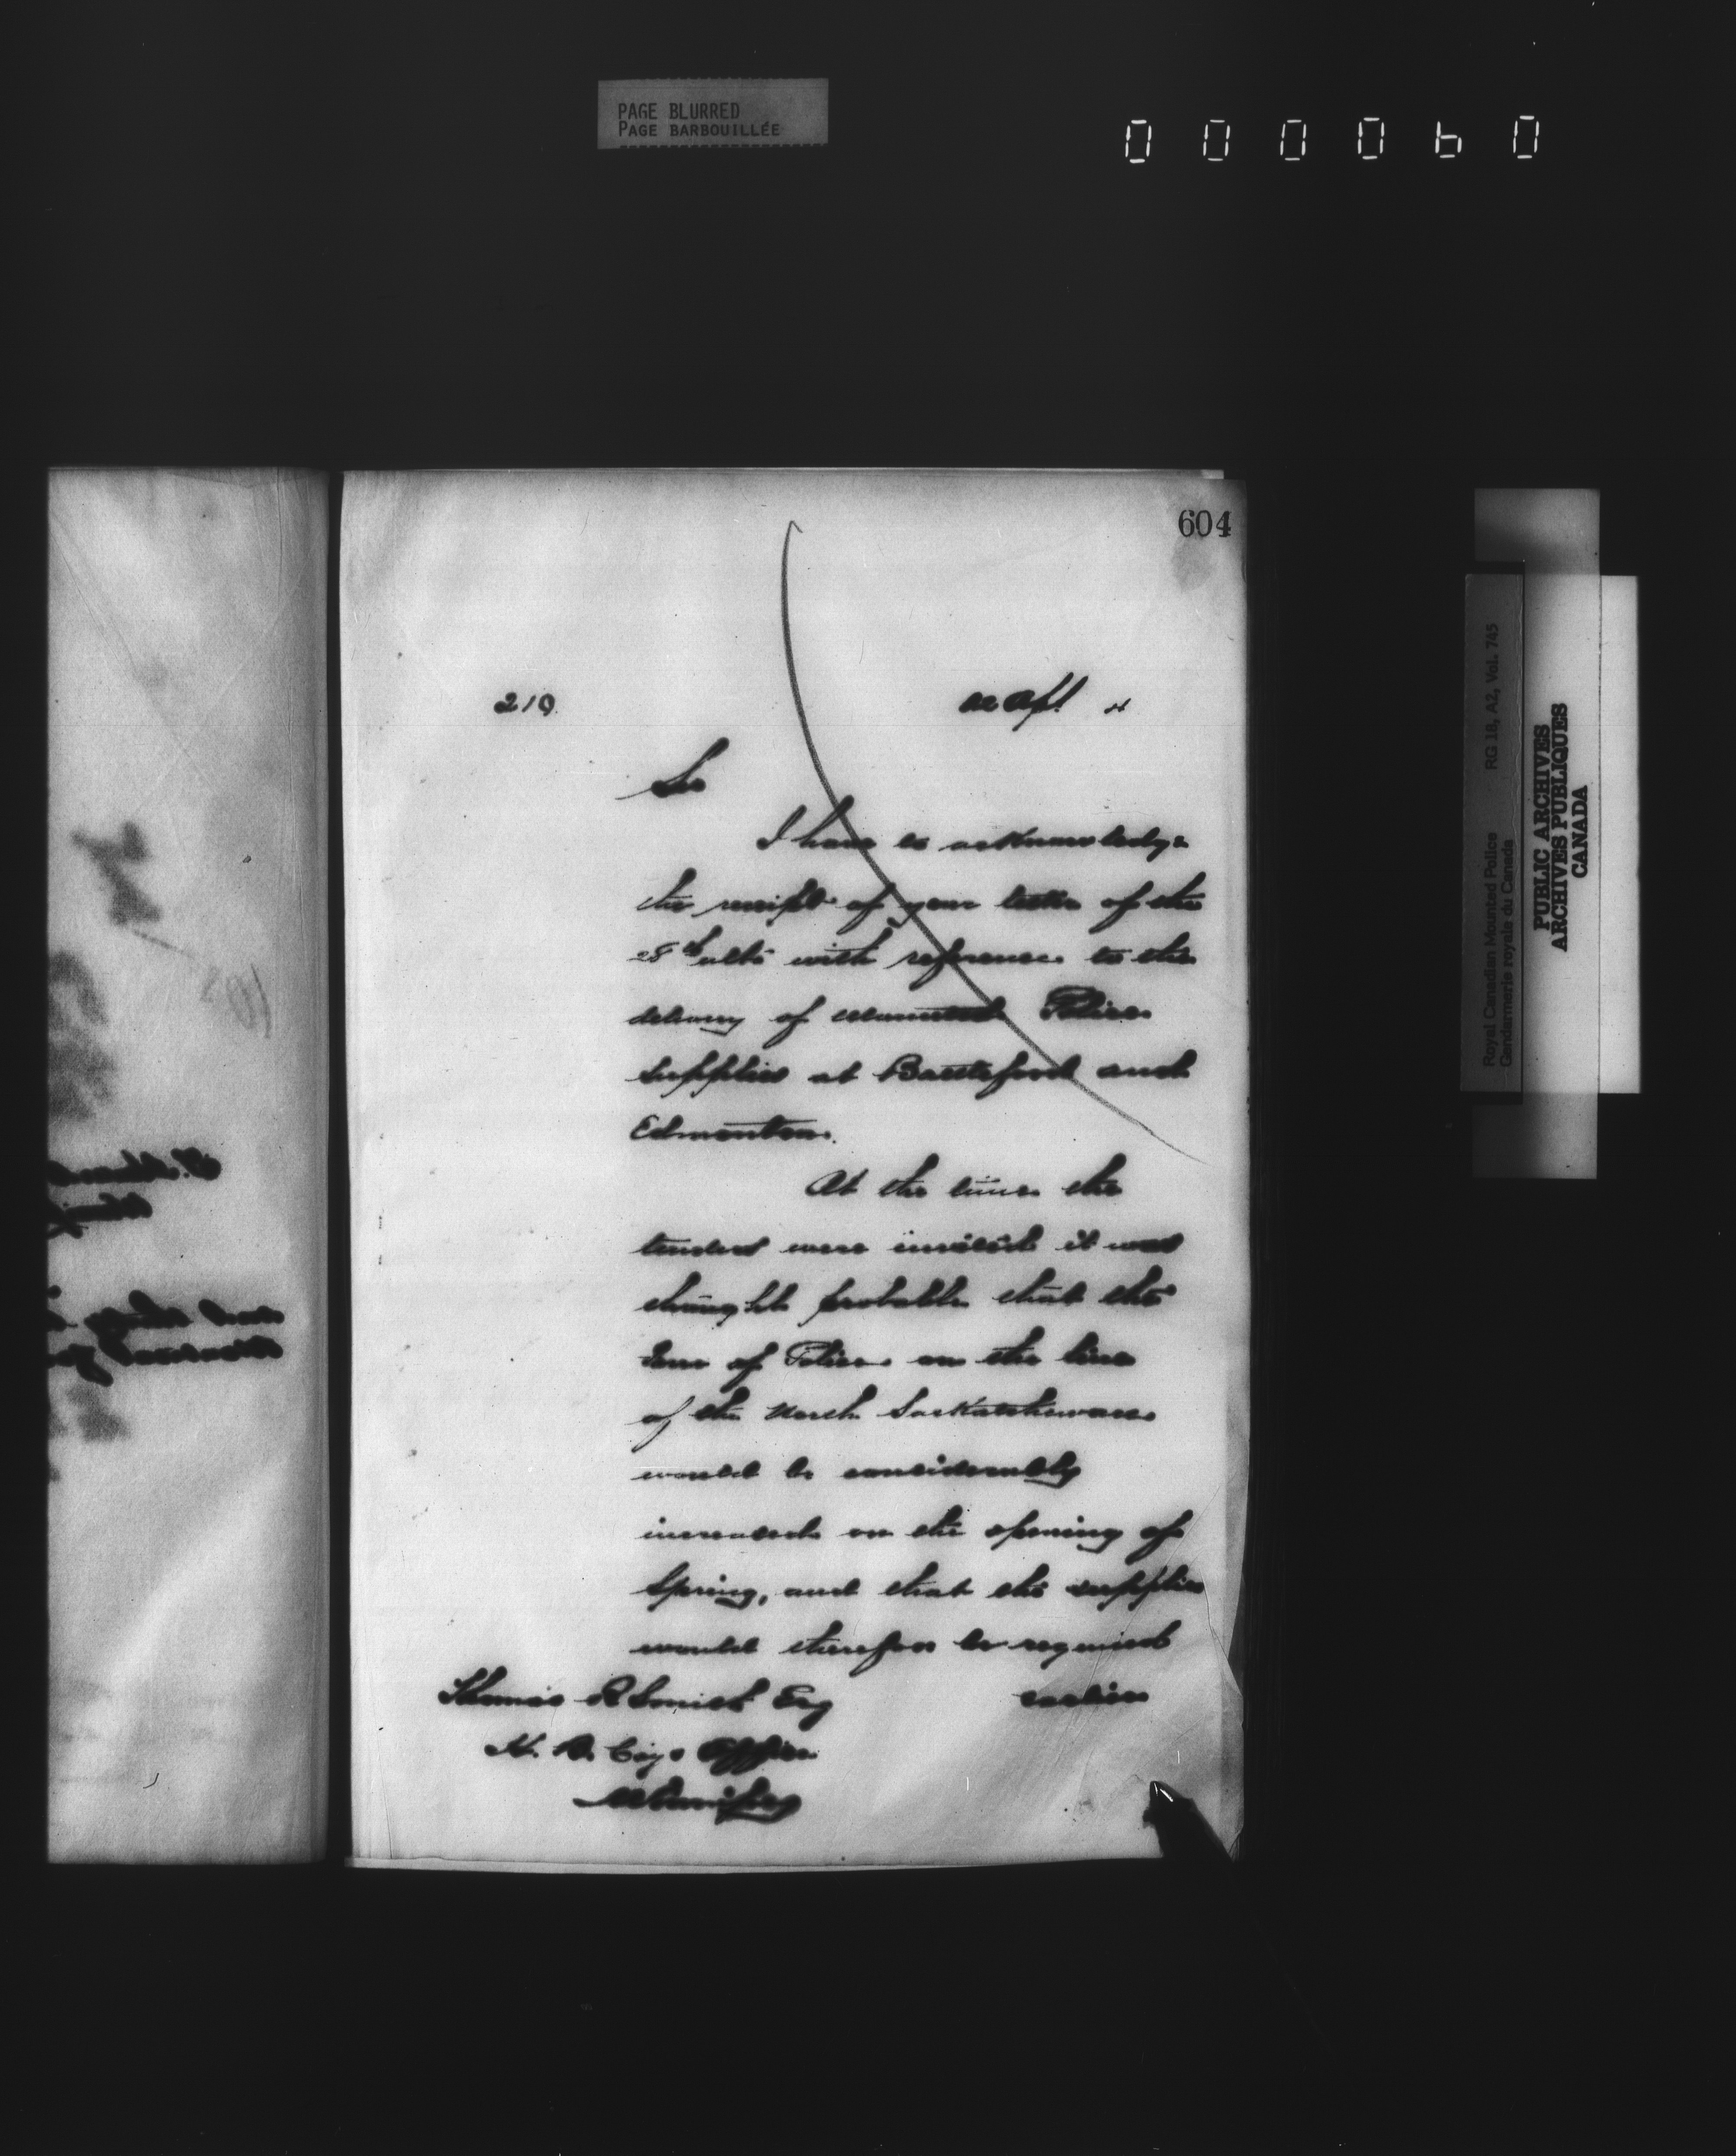 PAGE BLURRED
PAGE BARBOUILLÉE
000060
604
219
Apl
Sir
I have to acknowledge
the receipt of your letter of the
ulto with reference to the
delivery of Mounted Police
supplies at Battleford and
Edmonton.
At the time the
tenders were invited it was
thought probable that the
Force of Police on the line
of the North Saskatchewan
would be considerably
increased on the opening of
Spring, and that the supplies
would therefore be required
earlier
Thomas R Smith Esq
H. B. Coys Office
Winnipeg
Royal Canadian Mounted Police RG 18, A2, Vol. 745
Gendarmerie royale du Canada
PUBLIC ARCHIVES
ARCHIVES PUBLIQUES
CANADA